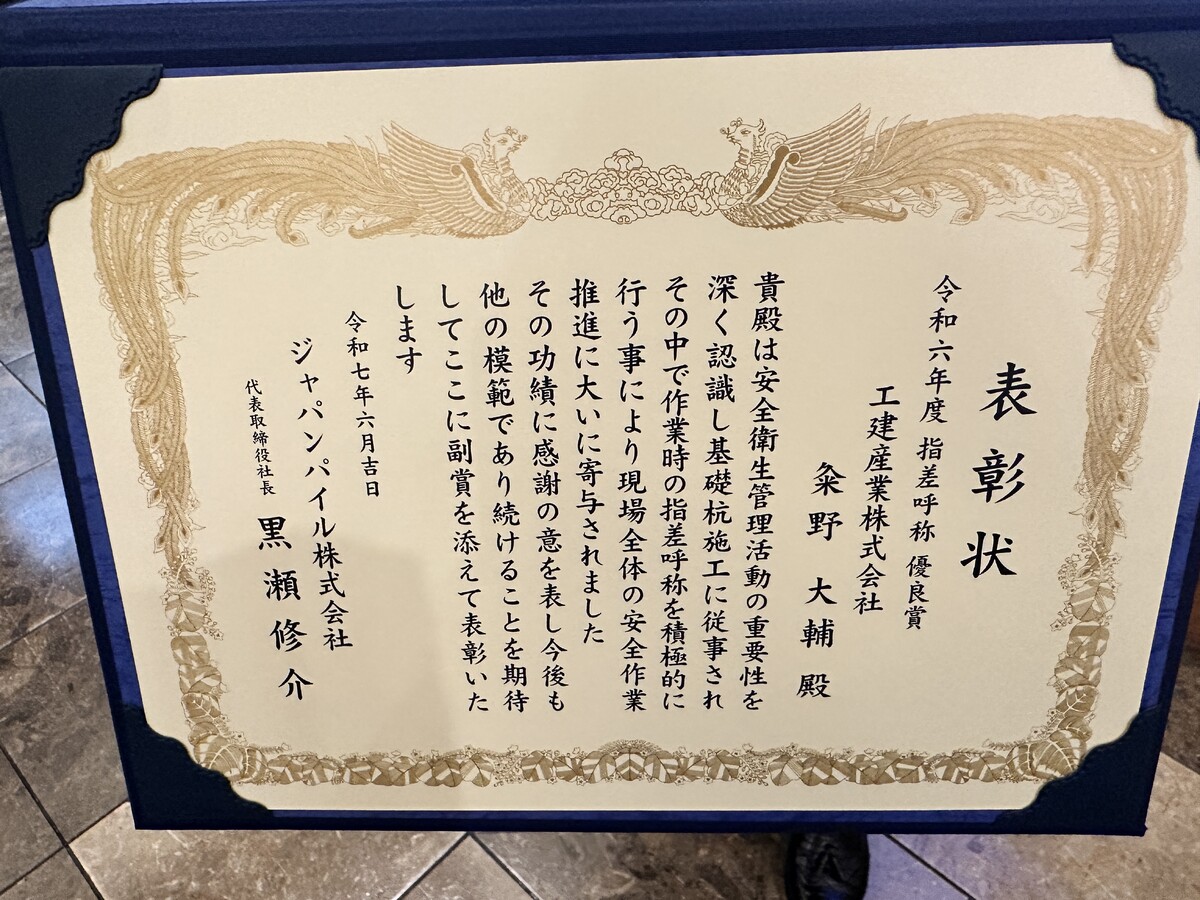 表彰状
令和六年度 指差呼称 優良賞
工建産業株式会社
粂野 大輔 殿
貴殿は安全衛生管理活動の重要性を
深く認識し基礎杭施工に従事され
その中で作業時の指差呼称を積極的に
行う事により現場全体の安全作業
推進に大いに寄与されました
その功績に感謝の意を表し今後も
他の模範であり続けることを期待
してここに副賞を添えて表彰いた
します
令和七年六月吉日
ジャパンパイル株式会社
代表取締役社長 黒瀬修介